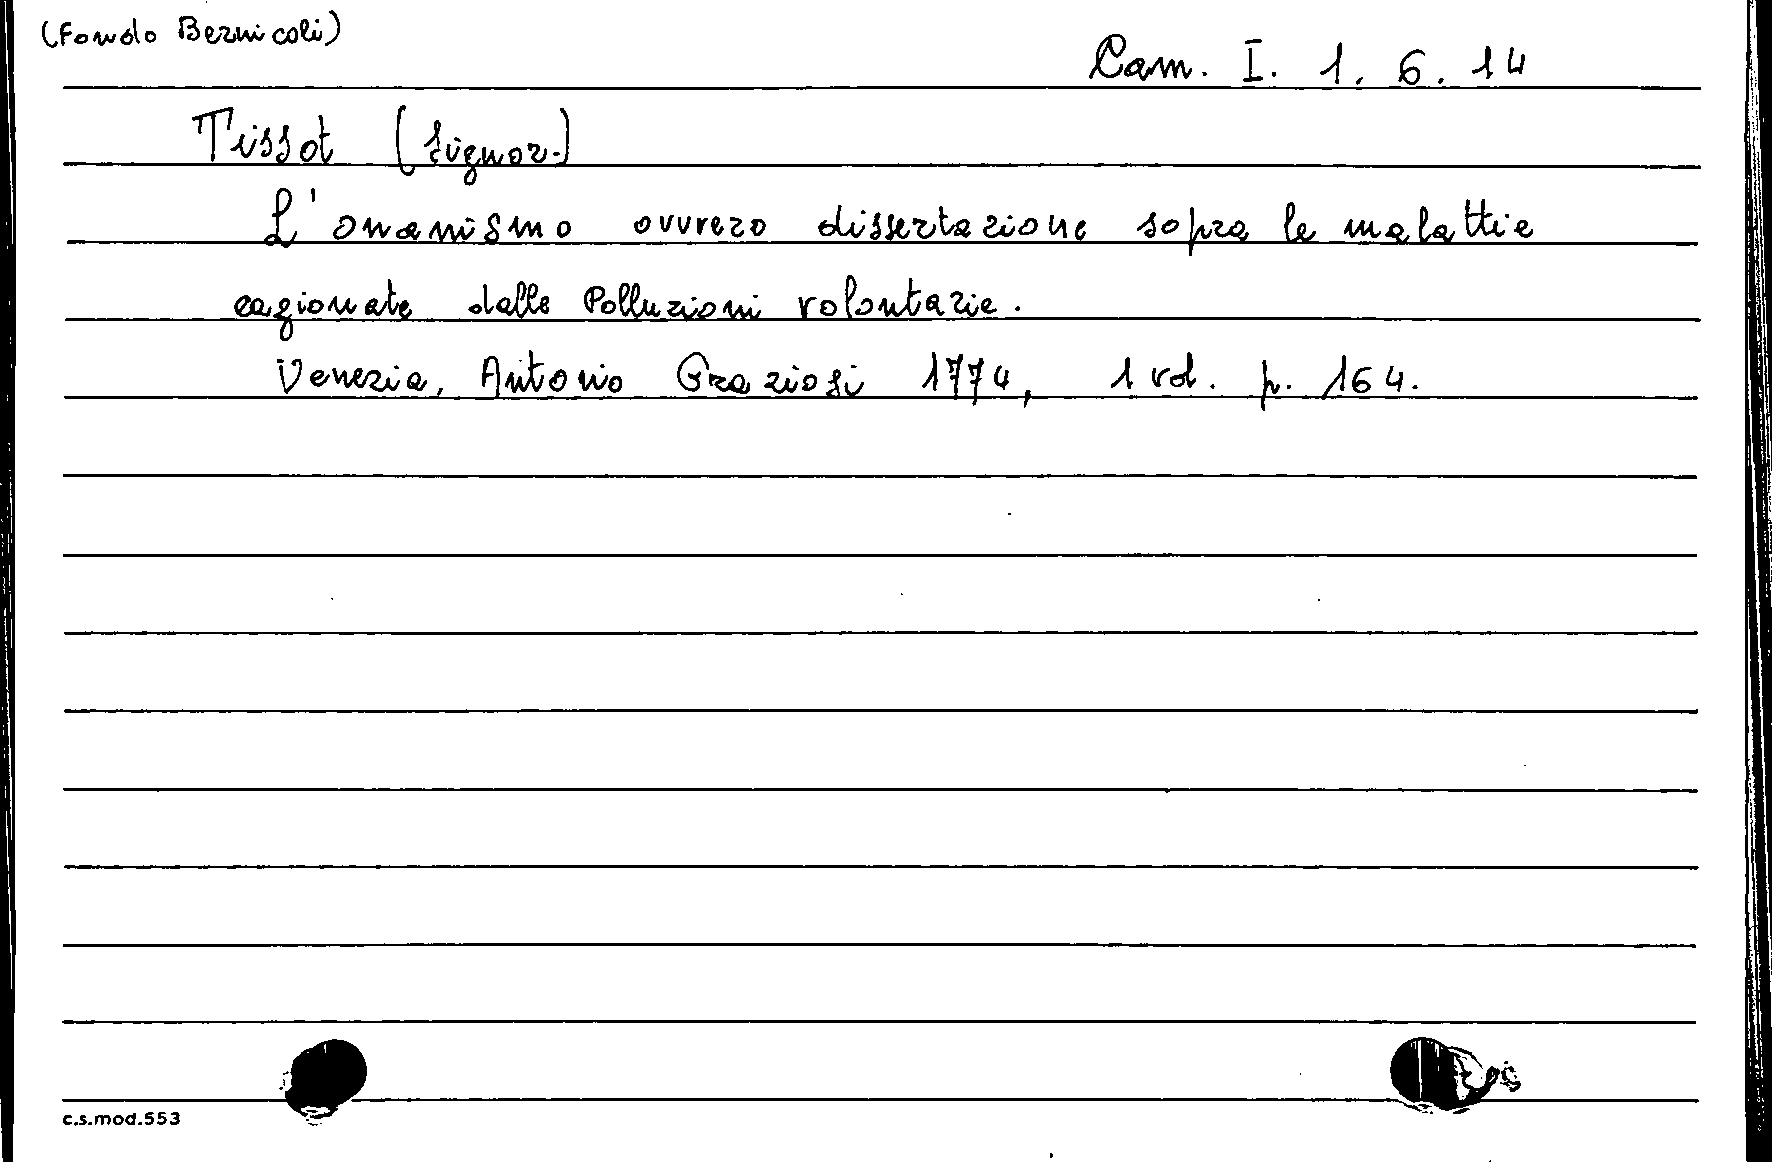 (Fondo Bernicoli)
Cam. I. 1. 6. 14
Tissot (Signor.)
L'onanismo ovvero dissertazione sopra le malattie
cagionate dalle Polluzioni volontarie.
Venezia, Antonio Graziosi 1774, 1 vol. p. 164.
c.s.mod.553